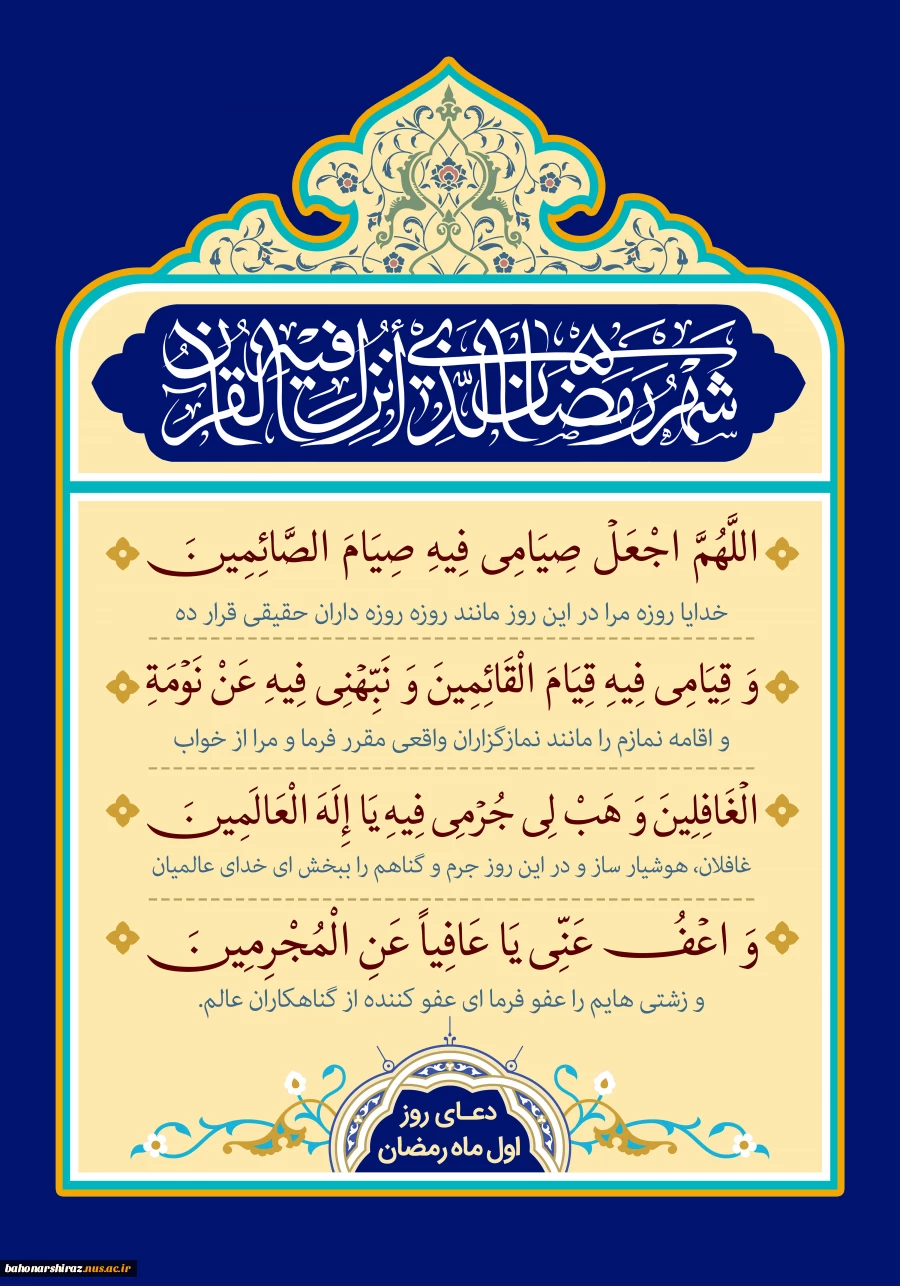 شَهْرُ رَمَضَانَ الَّذِي أُنْزِلَ فِيهِ الْقُرْآنُ
اللَّهُمَّ اجْعَلْ صِيَامِى فِيهِ صِيَامَ الصَّائِمِينَ
خدایا روزه مرا در این روز مانند روزه روزه داران حقیقی قرار ده
وَ قِيَامِى فِيهِ قِيَامَ الْقَائِمِينَ وَ نَبِّهْنِى فِيهِ عَنْ نَوْمَةِ
و اقامه نمازم را مانند نمازگزاران واقعی مقرر فرما و مرا از خواب
الْغَافِلِينَ وَ هَبْ لِى جُرْمِى فِيهِ يَا إِلَهَ الْعَالَمِينَ
غافلان، هوشیار ساز و در این روز جرم و گناهم را ببخش ای خدای عالمیان
وَ اعْفُ عَنِّى يَا عَافِياً عَنِ الْمُجْرِمِينَ
و زشتی هایم را عفو فرما ای عفو کننده از گناهکاران عالم.
دعـای روز
اول ماه رمضان
bahonarshiraz.nus.ac.ir